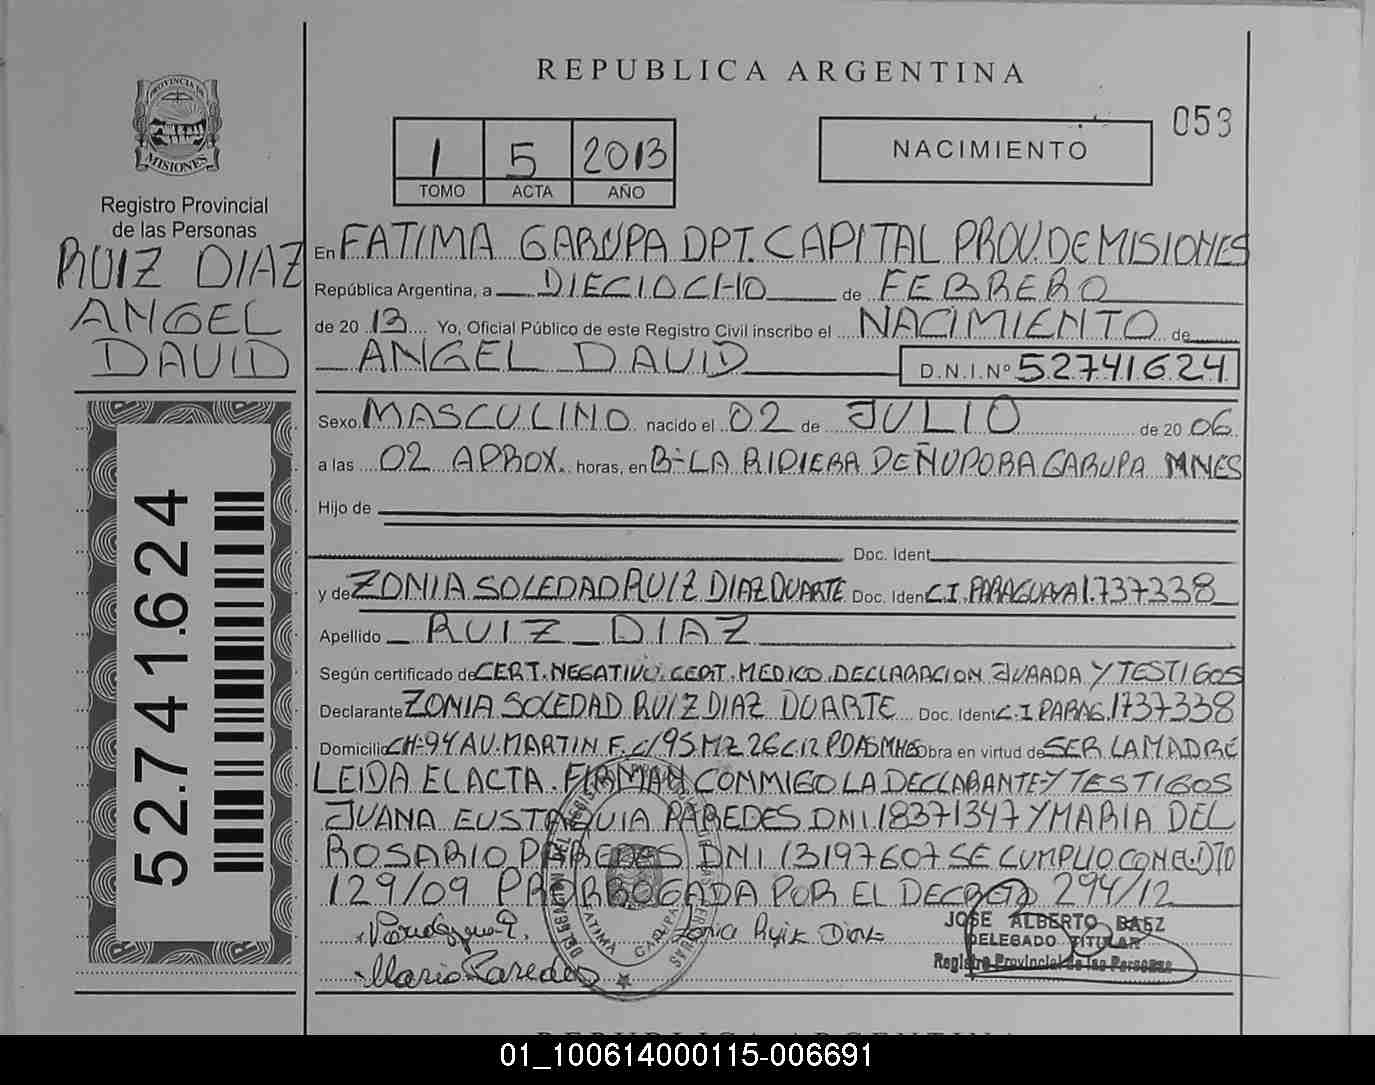 REPUBLICA ARGENTINA
053
NACIMIENTO
1 5 2013
TOMO ACTA AÑO
PROVINCIA DE
MISIONES
Registro Provincial
de las Personas
RUIZ DIAZ
ANGEL
DAVID
52.741.624
En FATIMA GARUPA DPT. CAPITAL PROV. DE MISIONES
República Argentina, a DIECIOCHO de FEBRERO
de 20 13 Yo, Oficial Público de este Registro Civil inscribo el NACIMIENTO de
ANGEL DAVID D.N.I.Nº 52741624
Sexo MASCULINO nacido el 02 de JULIO de 20 06
a las 02 APROX. horas, en Bº LA RIDIERA DE ÑUPORA GARUPA MNES
Hijo de
Doc. Ident
y de ZONIA SOLEDAD RUIZ DIAZ DUARTE Doc. Iden C.I. PARAGUAYA 1.737.338
Apellido RUIZ DIAZ
Según certificado de CERT. NEGATIVO. CERT. MEDICO. DECLARACION JURADA Y TESTIGOS
Declarante ZONIA SOLEDAD RUIZ DIAZ DUARTE Doc. Ident C.I PARAG. 1737338
Domicilio CH-94 AV. MARTIN F. C/ 95 MZ 26 C.12 PDAS MNES Obra en virtud de SER LA MADRE
LEIDA EL ACTA. FIRMAN CONMIGO LA DECLARANTE Y TESTIGOS
JUANA EUSTAQUIA PAREDES DNI 18371347 Y MARIA DEL
ROSARIO PAREDES DNI 13197607 SE CUMPLIO CON EL DTO
129/09 PRORROGADA POR EL DECRETO 294/12
Zonia Ruiz Diaz
Maria Paredes
FATIMA GARUPA
JOSE ALBERTO BAEZ
DELEGADO TITULAR
Registro Provincial de las Personas
01_100614000115-006691